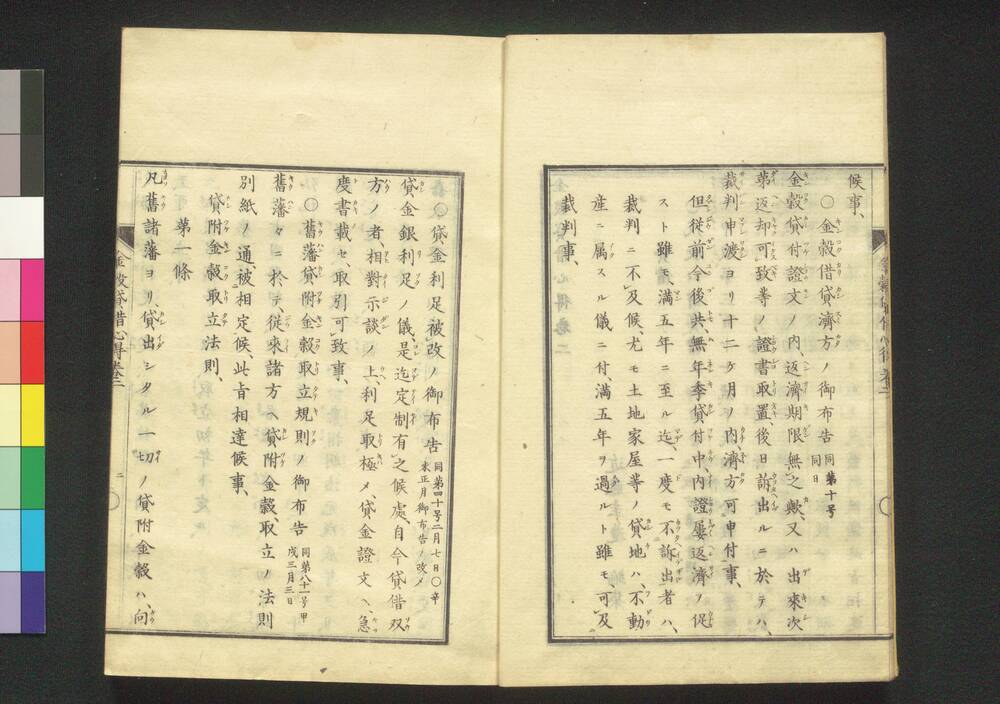 候事、
○金穀借貸濟方ノ御布告 同第十号 同日
金穀貸付證文ノ内、返濟期限無之歟、又ハ出來次
第返却可致等ノ證書取置、後日訴出ルニ於テハ、
裁判申渡ヨリ十二ケ月ノ内、濟方可申付事、
但従前今後共、無年季貸付中、内證屡返濟ノ促
スト雖モ、満五年ニ至ル迄、一度モ不訴出者ハ、
裁判ニ不及候、尤モ土地家屋等ノ貸地ハ、不動
産ニ属スル儀ニ付、満五年ヲ過ルト雖モ、可及
裁判事、
○貸金利足被改ノ御布告 同第四十号二月七日○辛未正月御布告ノ改メ
貸金銀利足ノ儀、是迄定制有之候處、自今貸借双
方ノ者、相對示談ノ上、利足取極メ、貸金證文ヘ、急
度書載セ、取引可致事、
○舊藩貸附金穀取立規則ノ御布告 同第八十一号甲戌三月三日
舊藩々ニ於テ従來諸方ヘ貸附金穀、取立ノ法則
別紙ノ通、被相定候、此旨相達候事、
貸附金穀取立法則、
第一條
凡舊諸藩ヨリ、貸出シタル一切ノ貸附金穀ハ、向
金穀貸借心得 巻二
二